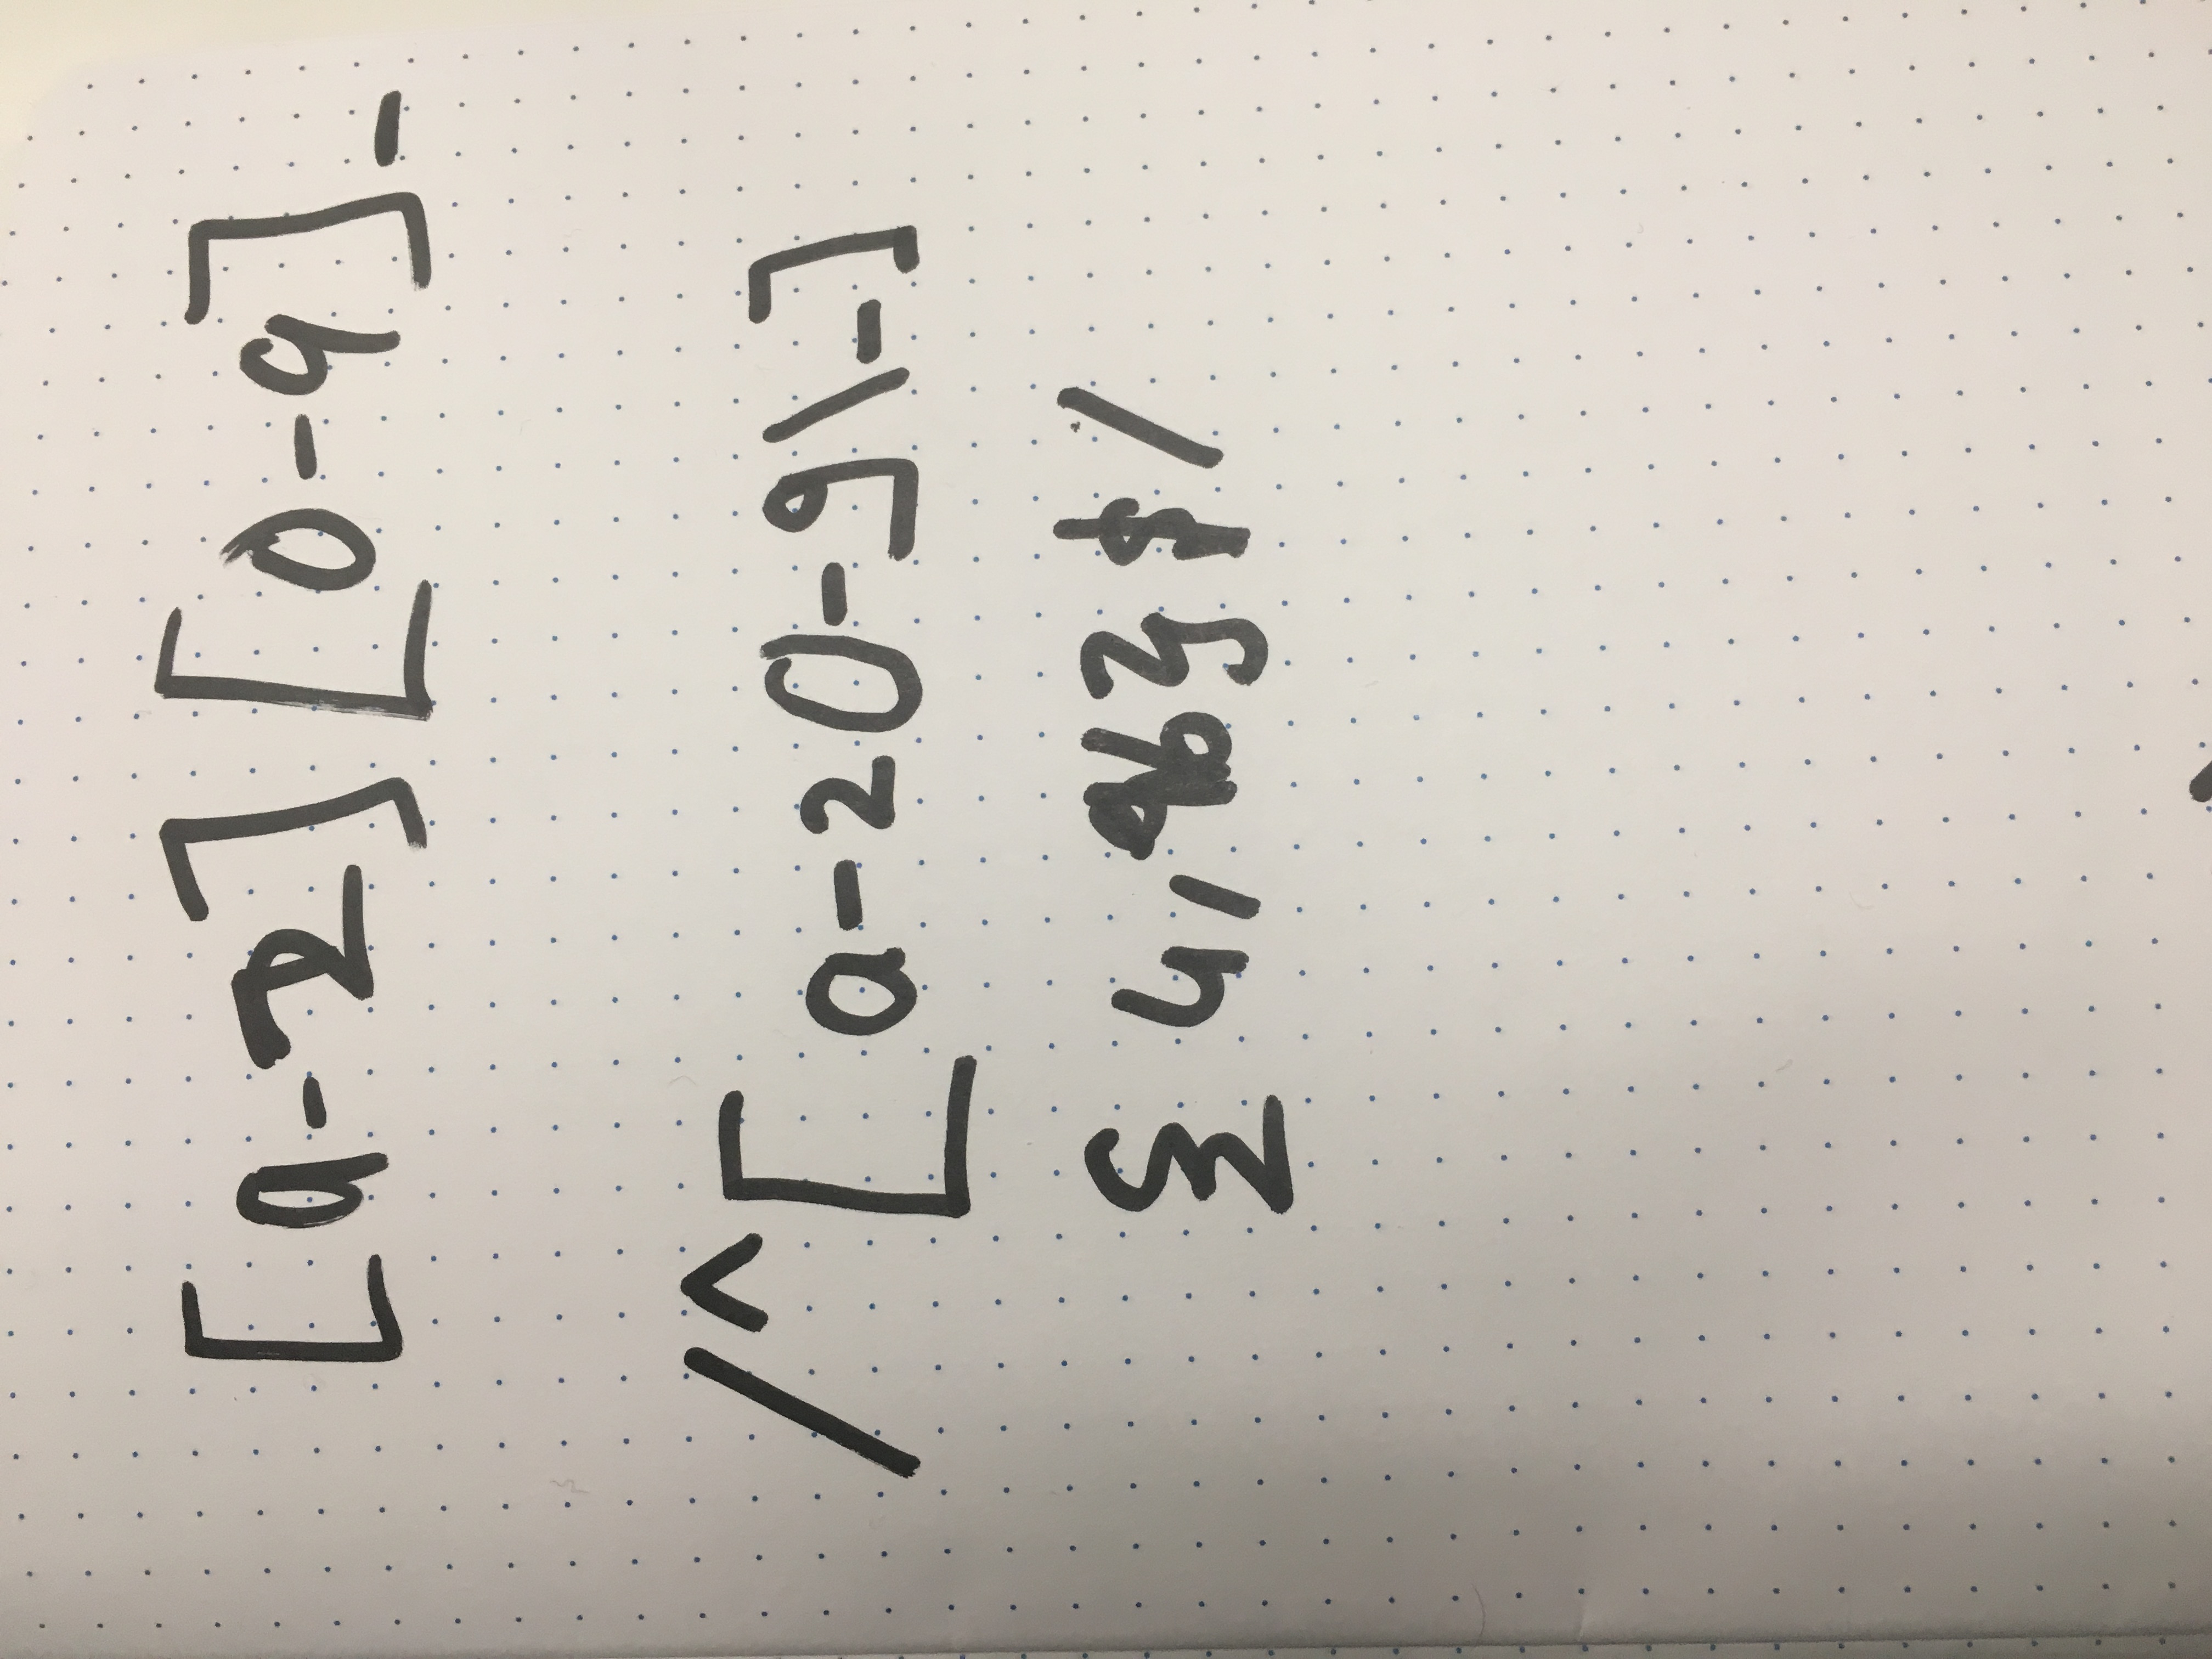 [a-z][0-9]_
/^[a-z0-9\_]
{4,96}$/